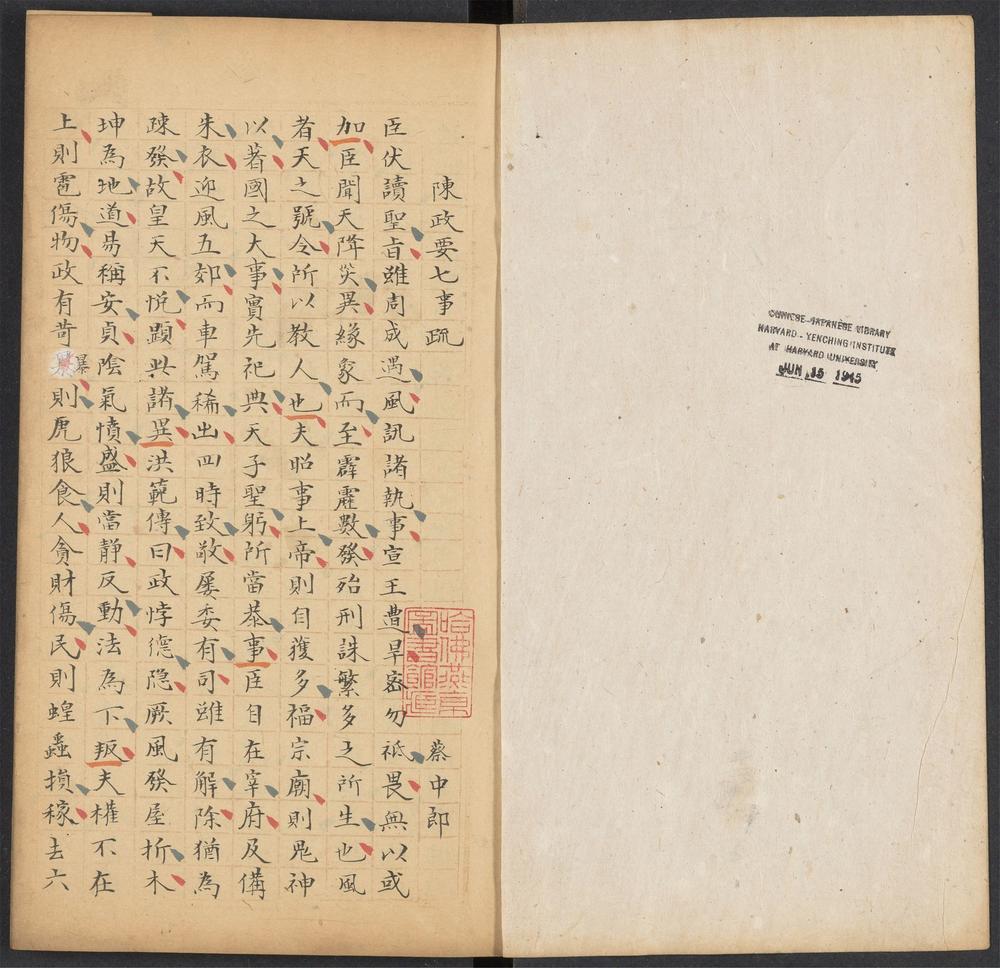 CHINESE-JAPANESE LIBRARY
HARVARD-YENCHING INSTITUTE
AT HARVARD UNIVERSITY
JUN 15 1945
陳政要七事疏 蔡中郎
臣伏讀聖旨雖周成遇風訊諸執事宣王遭旱密勿祗畏無以或
加臣聞天降災異緣象而至霹靂數發殆刑誅繁多之所生也風
者天之號令所以教人也夫昭事上帝則自獲多福宗廟則鬼神
以著國之大事實先祀典天子聖躬所當恭事臣自在宰府及備
朱衣迎風五郊而車駕稀出四時致敬屢委有司雖有解除猶為
疎發故皇天不悅顯此諸異洪範傳曰政悖德隐厥風發屋折木
坤為地道易稱安貞陰氣憤盛則當静反動法為下叛夫權不在
上則雹傷物政有苛暴則虎狼食人貪財傷民則蝗蟲損稼去六
哈佛燕京
圖書館藏